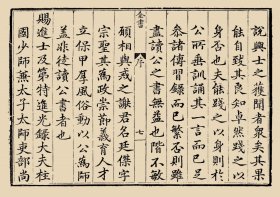 說興士之獲聞者衆矣其果
能自致其良知卓然踐之以
身否也夫能踐之以身則於
公所垂訓誦其一言而已足
參諸傳習錄而已繁否則雖
盡讀公之書無益也階不敏
願相與戒之謝君名廷傑字
宗聖其爲政崇節義育人才
立保甲厚風俗動以公爲師
蓋非徒讀公書者也
賜進士及第特進光祿大夫柱
國少師兼太子太師吏部尚
全書 序 七